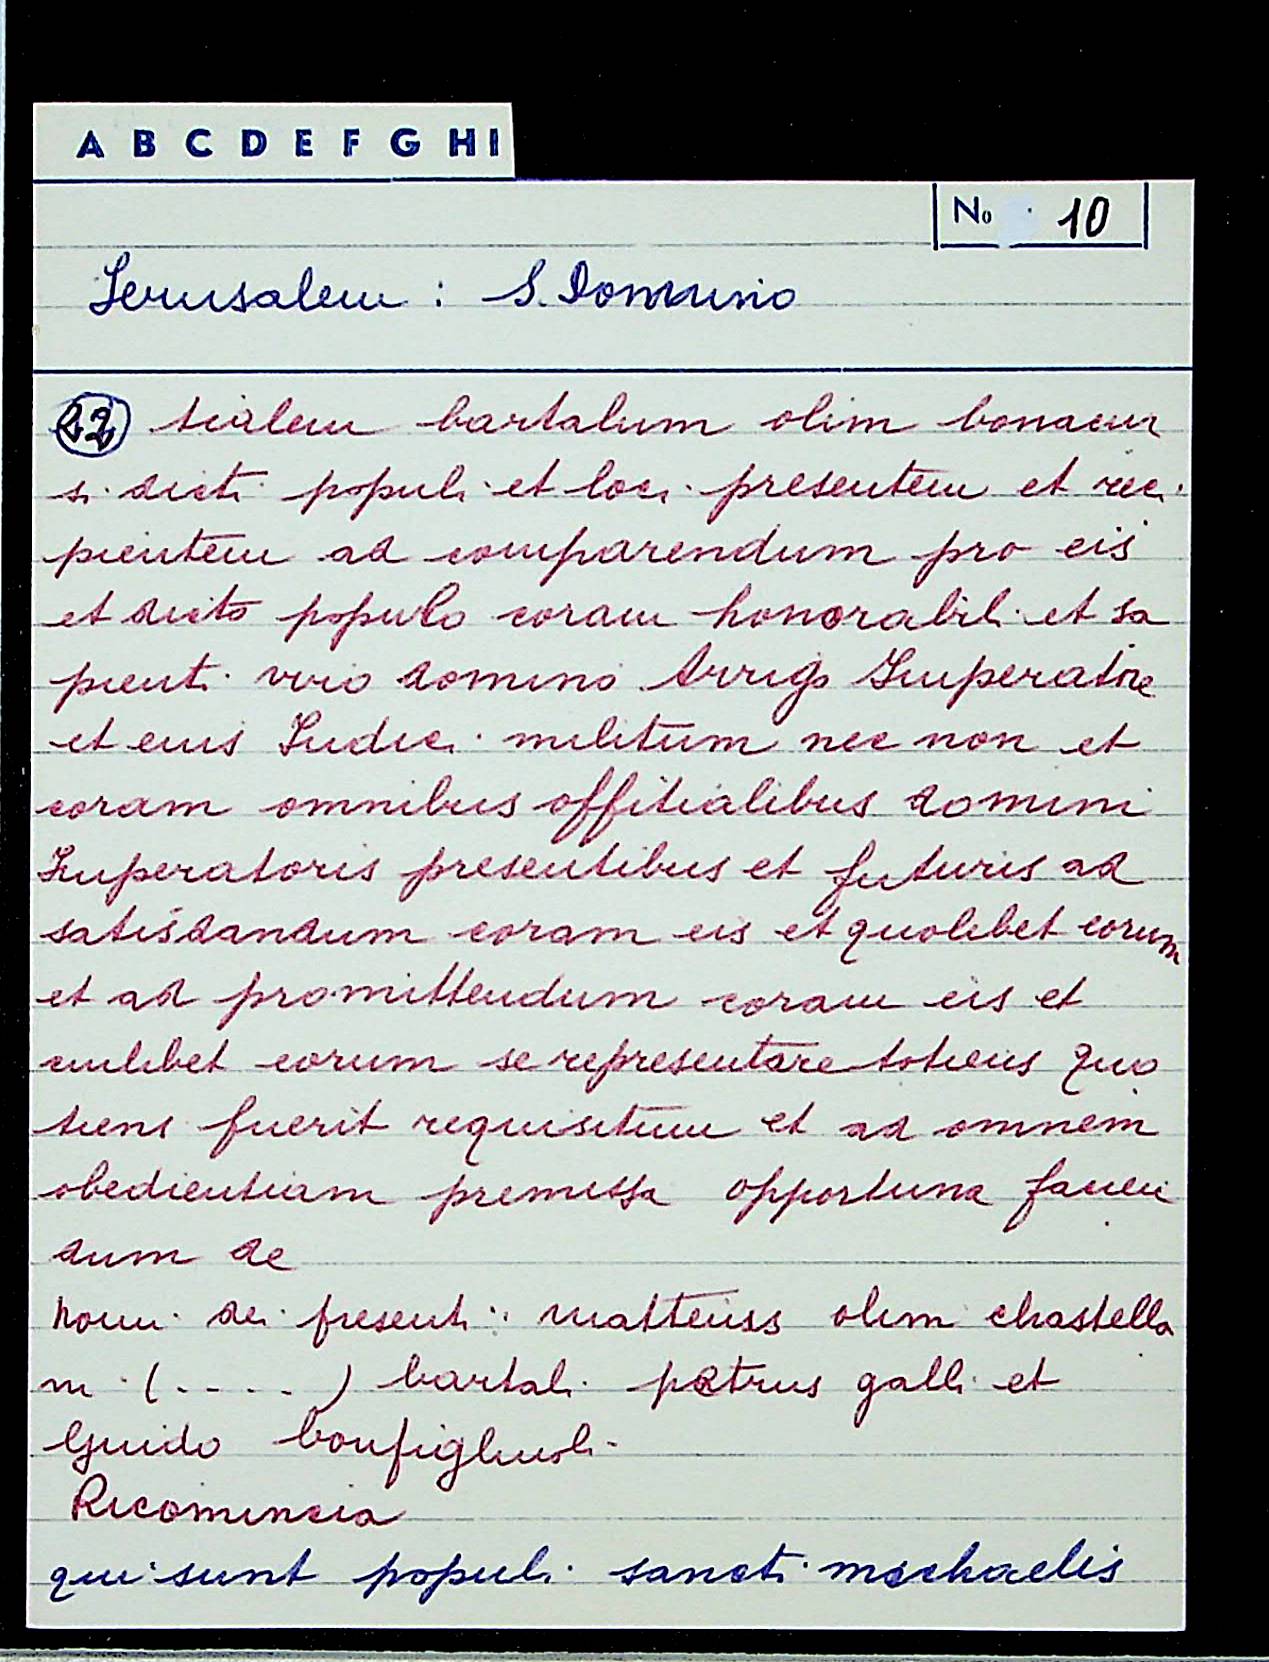 A B C D E F G H I
No 10
Jerusalem : S. Donnino
22 tialem bartalum olim bonacur
si dicti populi et loci presentem et reci
pientem ad comparendum pro eis
et dicto populo coram honorabili et sa
pienti viro domino Arrigo Imperatore
et eius Iudici militum nec non et
coram omnibus offitialibus domini
Imperatoris presentibus et futuris ad
satisdandum coram eis et quolibet eorum
et ad promittendum coram eis et
cuilibet eorum se representare totiens quo
tiens fuerit requisitum et ad omnem
obedientiam premissa opportuna facien
dum de
Nomi dei presenti: matteuss olim chastella
ni (....) bartali petrus galli et
Guido bonfigliuoli
Ricomincia
qui sunt populi sancti michaelis